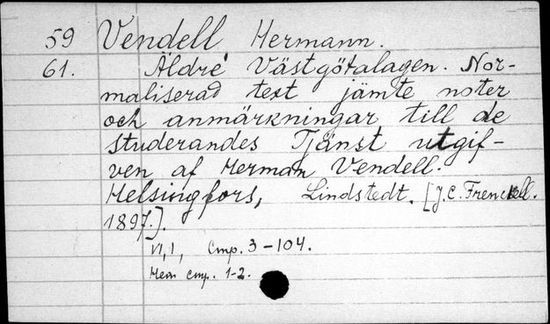 59 Vendell Hermann.
61. Äldre Västgötalagen. Nor-
maliserad text jämte noter
och anmärkningar till de
studerandes Tjänst utgif-
ven af Herman Vendell.
Helsingfors, Lindstedt. [J.C. Frenckell.
1897.].
VI,1, Cmp. 3-104.
Нем cmp. 1-2.